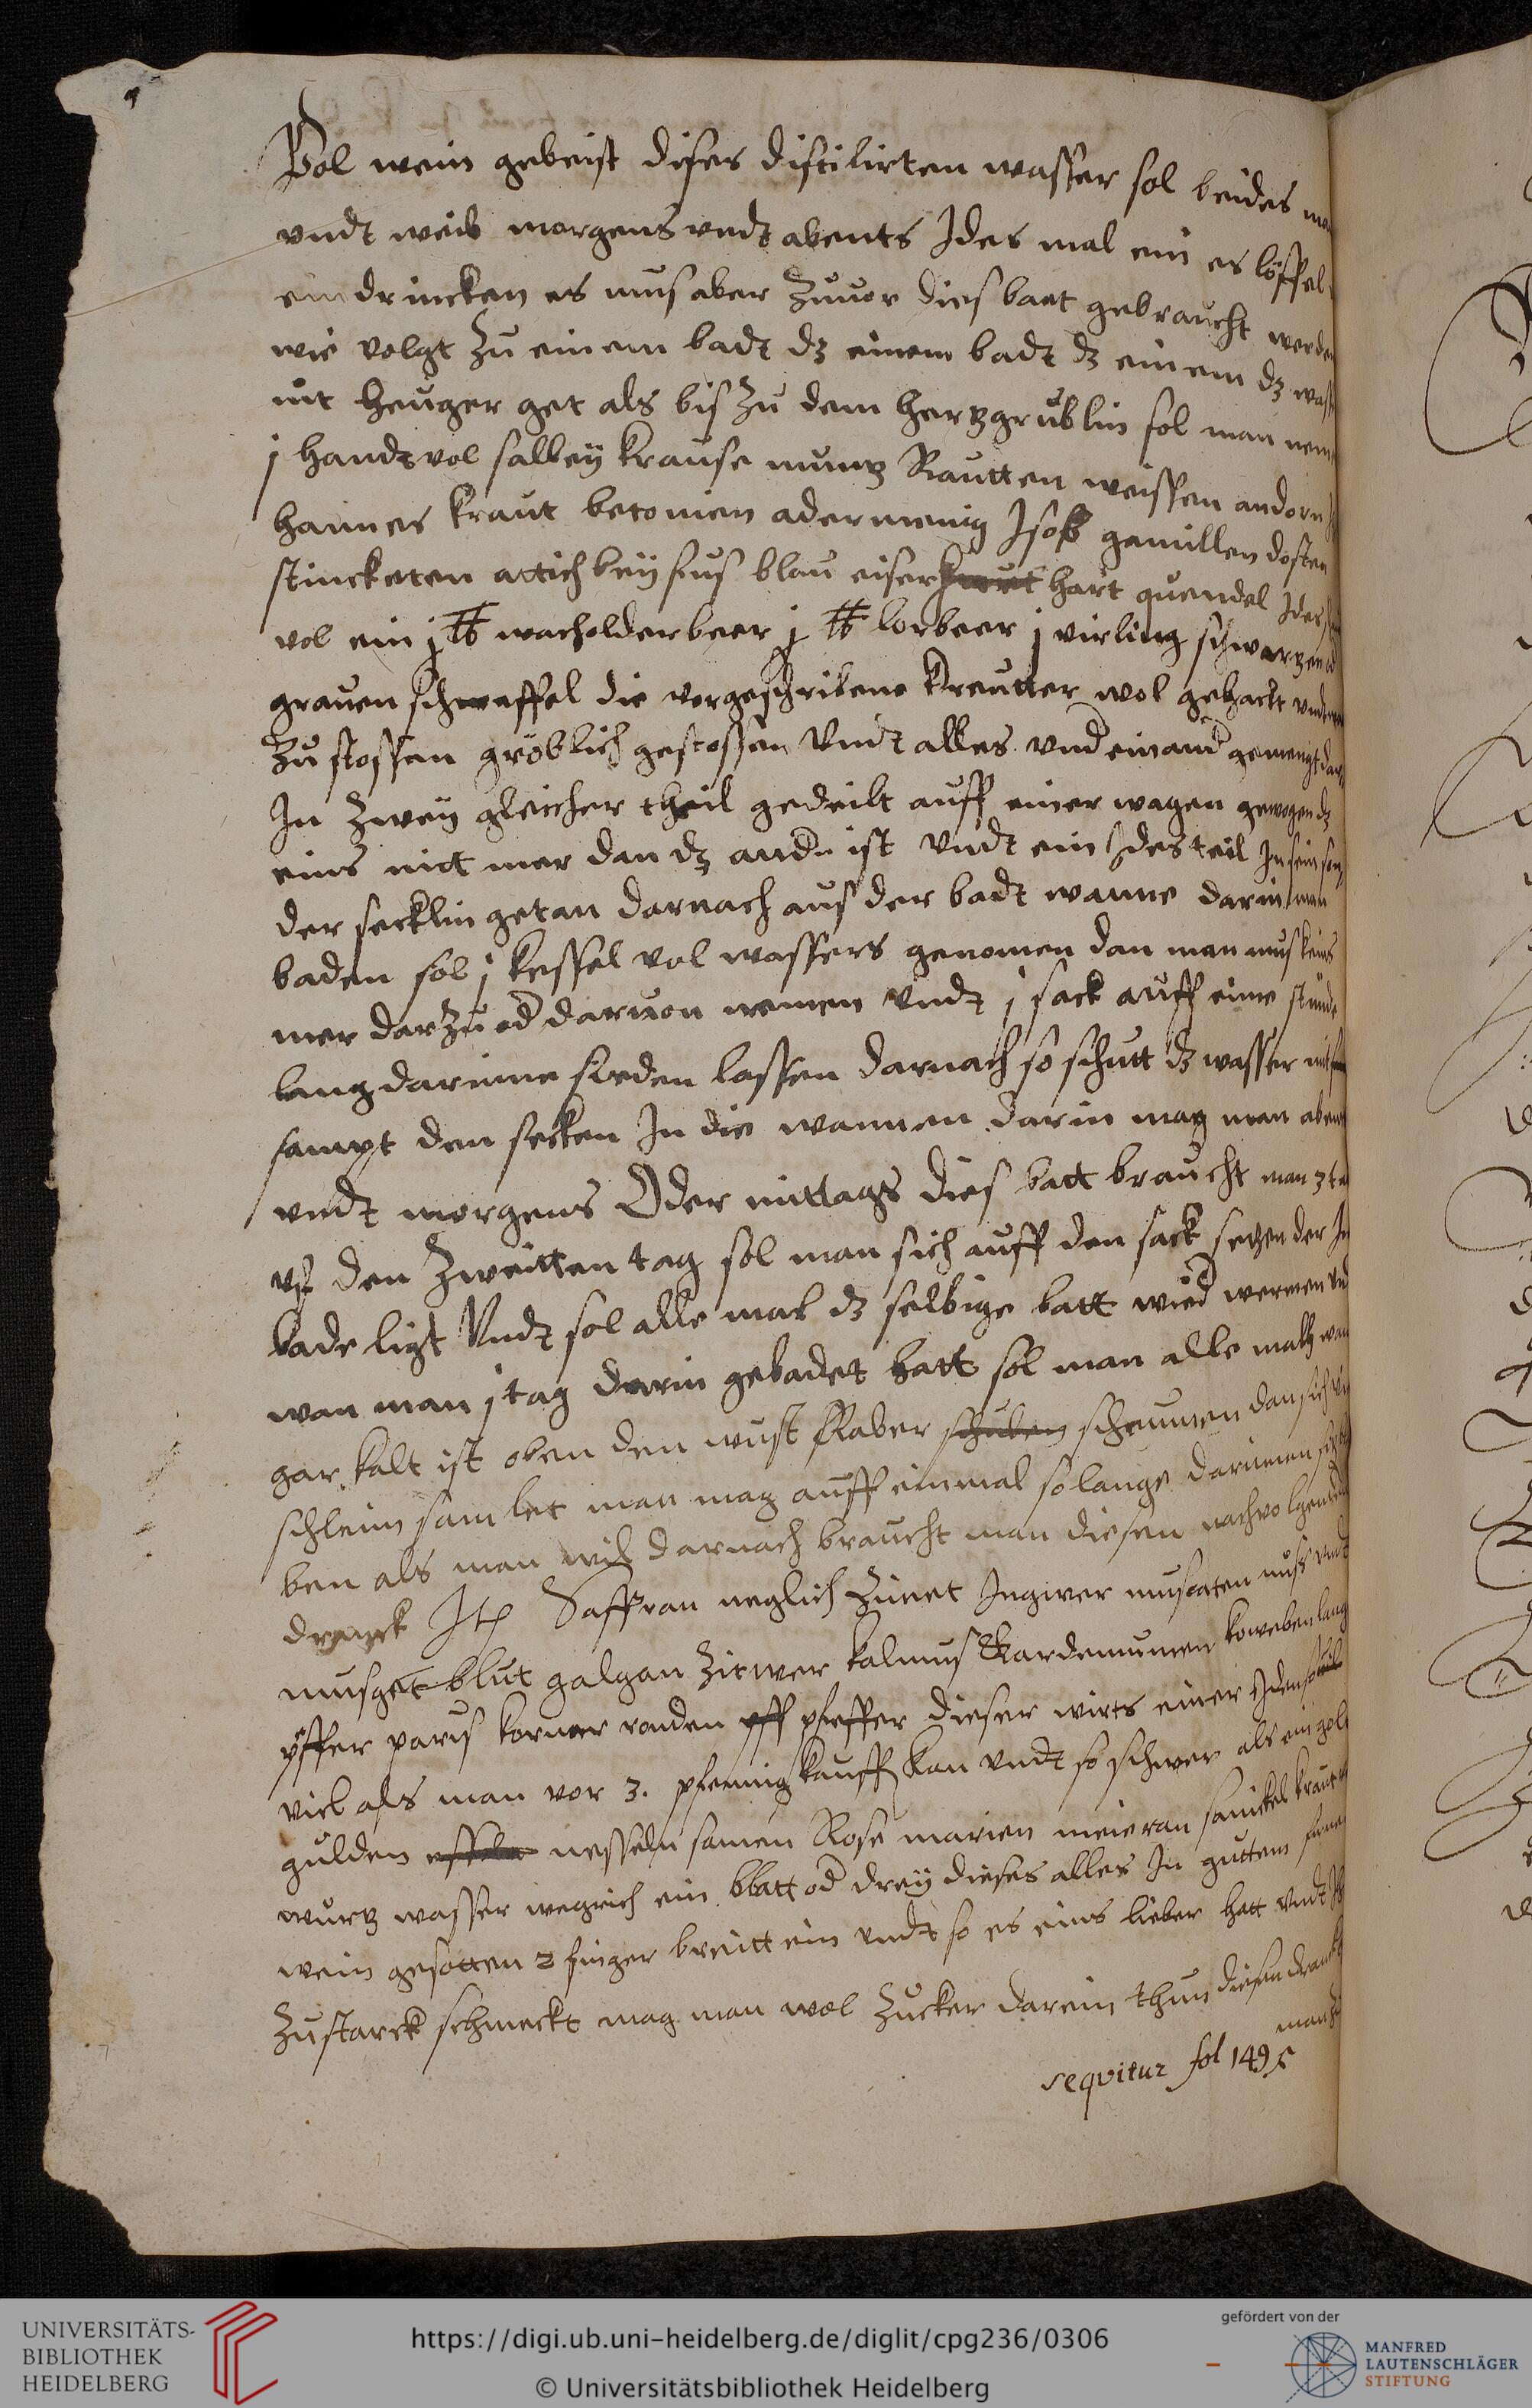 Vol wein gebeist dises distilirten wasser sol beides man
vndt weib morgens vndt abents Ides mal ein es löffel
ein drincken es mus aber zuuor dies baet gebraucht werden
wie volgt Zu einem badt dz einem badt dz einem dz wass
nit heuger get als bis zu dem hertzgrüblin sol man nem
j handtvol salbey krause muntz Rautten weissen andorn
hannes kraut betonien adermenig Isop gamillen dosten
stincketen attich beyfus blau eiserkraut hart quendel Ides
vol ein j ℔ wacholderbeer j ℔ lorbeer j virling schwartzen
grauen schweffel die vorgeschribene kreutter wol gehackt vndt
Zu stossen gröblich gestossen Vndt alles vnd einand gemengt dar
In Zwey gleicher theil gedeilt auff einer wagen gewogen dz
eins nit mer dan dz ander ist Vndt ein Ides teil In sein son
der secklin getan darnach aus der badt wanne darin man
baden sol j kessel vol wassers genomen dan man mus keins
mer darzu od daruon nemen Vndt j sack auff eine stunde
lang darinne sieden lassen darnach so schutt dz wasser mit
sampt den secken In die wannen darin mag man abent
vndt morgens Oder mittags dies batt braucht man 3 ta
vf den Zweitten tag sol man sich auff den sack setzen der In
bade ligt Vndt sol alle mal dz selbige batt wied wermen vnd
wan man j tag darin gebadet hatt sol man alle maltz wan
gar kalt ist oben den wust slaber schuben schaumen dan sich
schleim samlet man mag auff einmal so lange darinnen
ben als man wil darnach braucht man diesen nachvolgenden
dranck Itz Saffran neglich Zimet Ingwer muscaten nuss vndt
musget blut galgan Zitwer kalmus Kardemumen koweben lang
pffer paris korner ronden pff pfeffer dieser wirts einer Iden so
viel als man vor 3. pfennig kauff kan vndt so schwer als ein golt
gulden esseln nesseln samen Rose marien meieran sanickel kraut
wurtz wasser wegrich ein blatt od drey dieses alles In guttem
wein gesotten 2 finger breitt ein vndt so es eins lieber hatt vndt
Zu starck schmeckt mag man wol Zucker darein thun diesen dranck
man
sequitur fol 149
UNIVERSITÄTS-
BIBLIOTHEK
HEIDELBERG
https://digi.ub.uni-heidelberg.de/diglit/cpg236/0306
© Universitätsbibliothek Heidelberg
gefördert von der
MANFRED
LAUTENSCHLÄGER
STIFTUNG